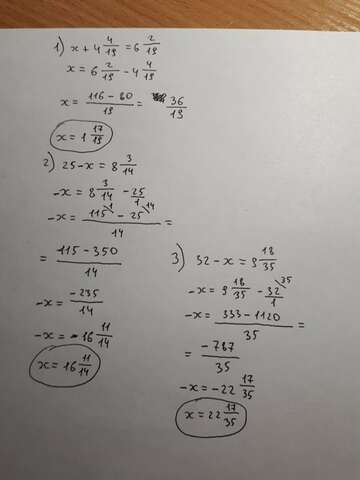 1) x + 4 4/19 = 6 2/19
x = 6 2/19 - 4 4/19
x = (116 - 80)/19 = 36/19
x = 1 17/19
2) 25 - x = 8 3/14
-x = 8 3/14 - 25/1
-x = (115\1 - 25\14)/14 =
= (115 - 350)/14
-x = -235/14
-x = -16 11/14
x = 16 11/14
3) 32 - x = 9 18/35
-x = 9 18/35 - 32/1\35
-x = (333 - 1120)/35 =
= -787/35
-x = -22 17/35
x = 22 17/35